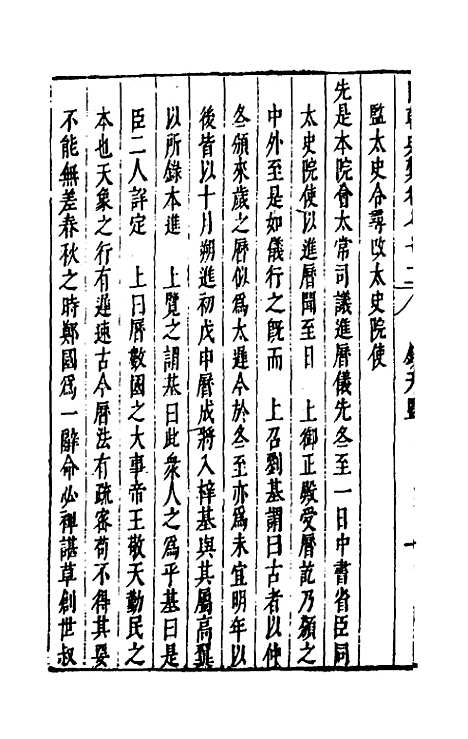 監太史令尋改太史院使
先是本院會太常司議進曆儀先冬至一日中書省臣同
太史院使以進曆聞至日　上御正殿受曆訖乃頒之
中外至是如儀行之既而　上召劉基謂曰古者以仲
冬頒來歲之曆似為太遲今於冬至亦為未宜明年以
後皆以十月朔進初戊申曆成將入梓基與其屬高翼
以所錄本進　上覽之謂基曰此衆人之為乎基曰是
臣二人詳定　上曰曆數國之大事帝王敬天勤民之
本也天象之行有遲速古今曆法有疏密苟不得其要
不能無差春秋之時鄭國為一辭命必裨諶草創世叔